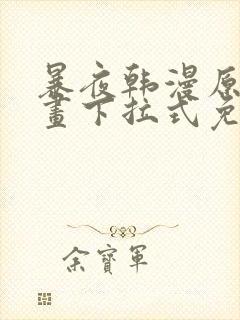 暴夜韩漫原
畫下拉式免
余寳軍